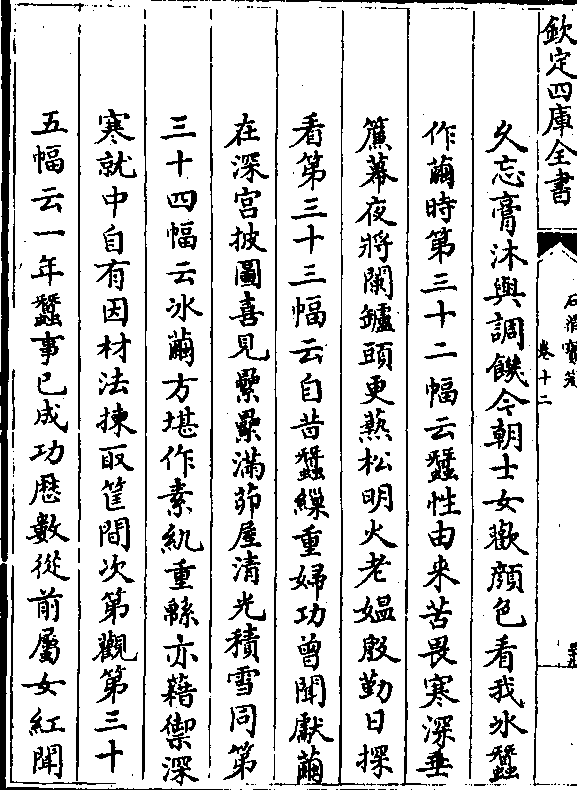 欽定四庫全書
石渠寶笈
卷十二
久忘膏沐與調饑今朝士女歡顔色看我冰蠶
作繭時第三十二幅云蠶性由来苦畏寒深垂
簾幕夜將闌鑪頭更爇松明火老媪殷勤日探
看第三十三幅云自昔蠶繅重婦功曾聞獻繭
在深宫披圖喜見纍纍滿茆屋清光積雪同第
三十四幅云冰繭方堪作素紈重緜亦藉禦深
寒就中自有因材法揀取筐間次第觀第三十
五幅云一年蠶事已成功歴數從前屬女紅聞